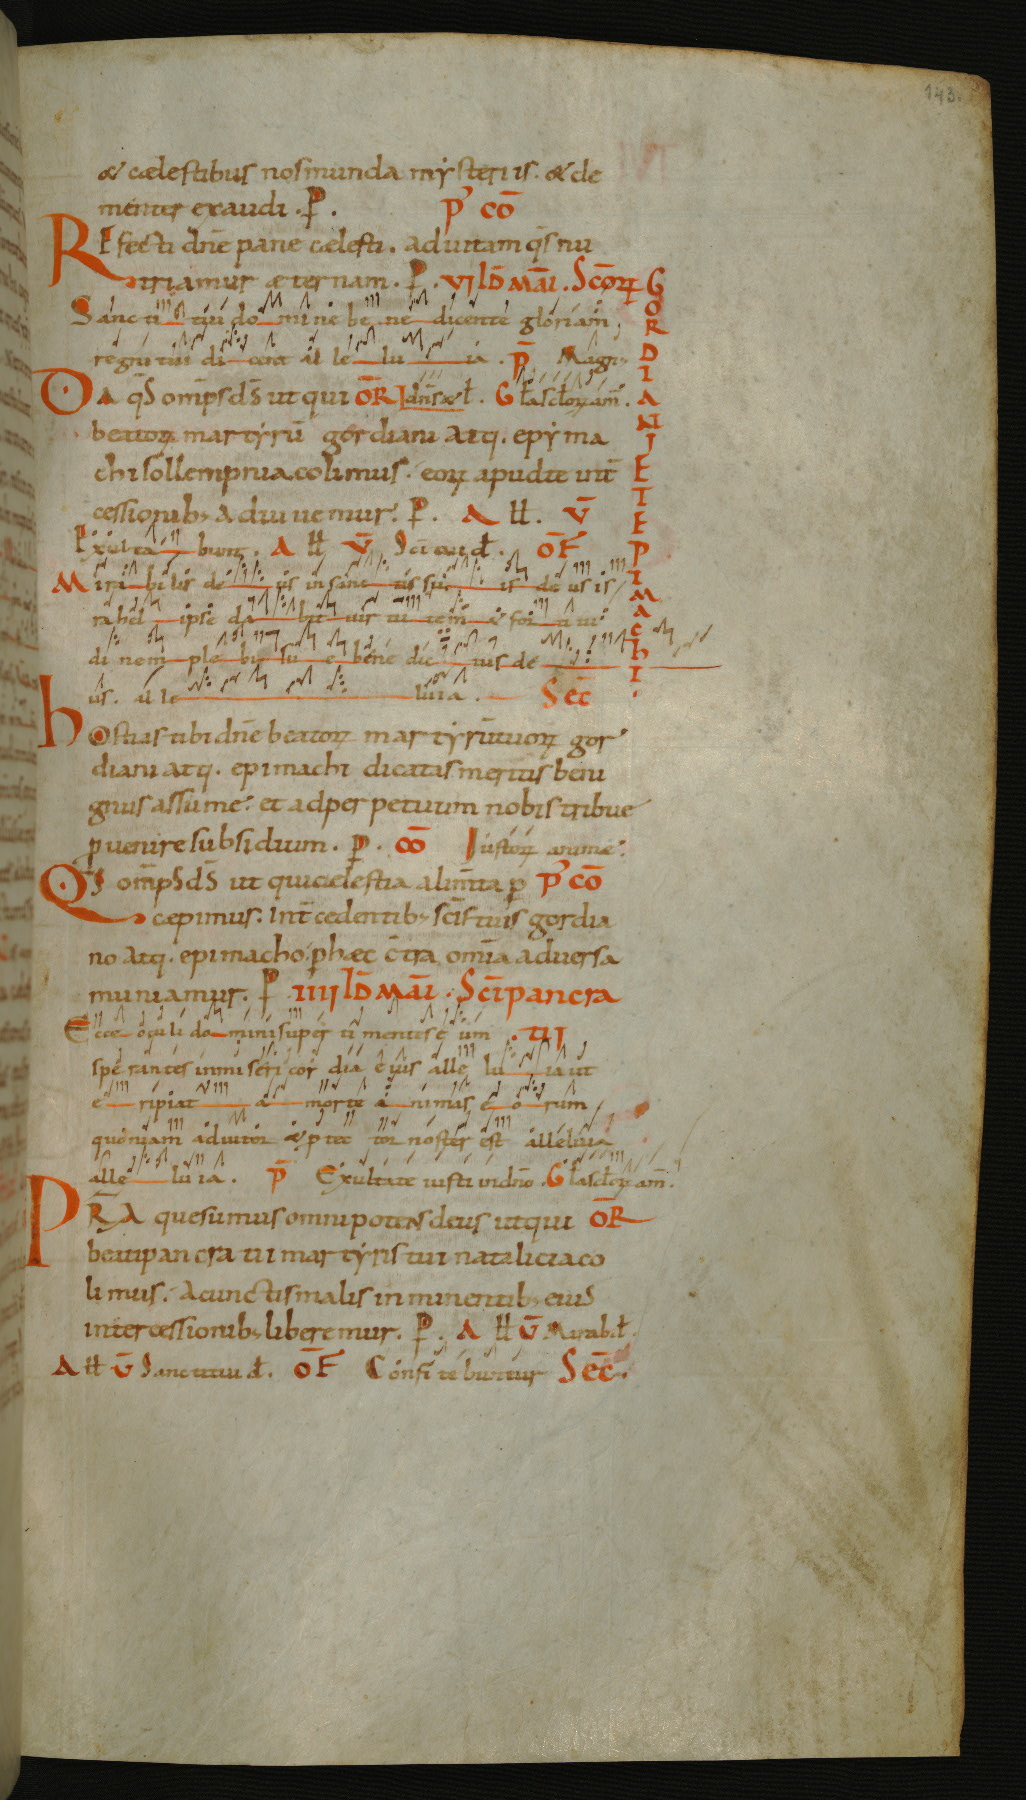 143.
& cælestibus nos munda mysteriis. & cle
menter exaudi. P. P̕ CŌ
REfecti dn̄e pane cælesti. ad uitam q̄s nu
triamur æternam. P. VI ID̄ MĀI. SCŌRꝜ
GORDIANI ET EPIMACHI.
Sancti tui domine benedicent gloriam
regni tui dicent al le lu ia. P̄ Magn
DA q̄s omp̄s d̄s ut qui ŌR I dn̄s & ł. G ł a scłoꝝ am̄.
beatoꝝ martyrū gordiani atq. epyma
chi sollempnia colimus. eoꝝ apud te int̄
cessionib; adiuuemur. P. A ll. V̄
Exultabunt. A ll V̄ Sci tui dł. ŌF
Mirabilis deus in sanctis suis deus is
rahel ipse dabit uirtutem & fortitu
dinem plebi suę benedictus de
us. alleluia. SEC̄
Hostias tibi dn̄e beatoꝝ martyrū tuoꝝ gor
diani atq. epimachi dicatas meritis beni
gnus assume. et ad perpetuum nobis tribue
puenire subsidium. P. CŌ Iustoꝝ animæ.
Qs omp̄s d̄s ut qui cælestia alim̄ta p P̕ CŌ
cæpimus. int̄cedentib; sc̄is tuis gordia
no atq. epimacho. p hæc c̄tra om̄ia aduersa
muniamur. P IIII ID̄ MĀI. SC̄I PANCRA
Ecce oculi domini super timentes eum .TII
sperantes in misericordia eius alleluia ut
eripiat a morte animas eorum
quoniam adiutor & ptector noster est alleluia
alleluia. P̄ Exultate iusti in dn̄o. G ł a scłoꝝ am̄.
PR̄A quesumus omnipotens deus ut qui ŌR
beati pancratii martyris tui natalicia co
limus. a cunctis malis inminentib; eius
intercessionib; liberemur. P. A ll V̄ Mirab. ł.
A ll V̄ Sancti tui dł. ŌF Confitebuntur SEC̄.